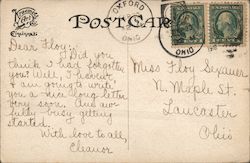 POST CARD
OXFORD
OHIO
OHIO
Dear Floy:-
Did you
think I had forgotten
you? Well, I haven't.
I am going to write
you a nice long letter
very soon. Am aw-
fully busy getting
started.
With love to all,
Eleanor
Miss Floy
N. Maple St.
Lancaster
Ohio